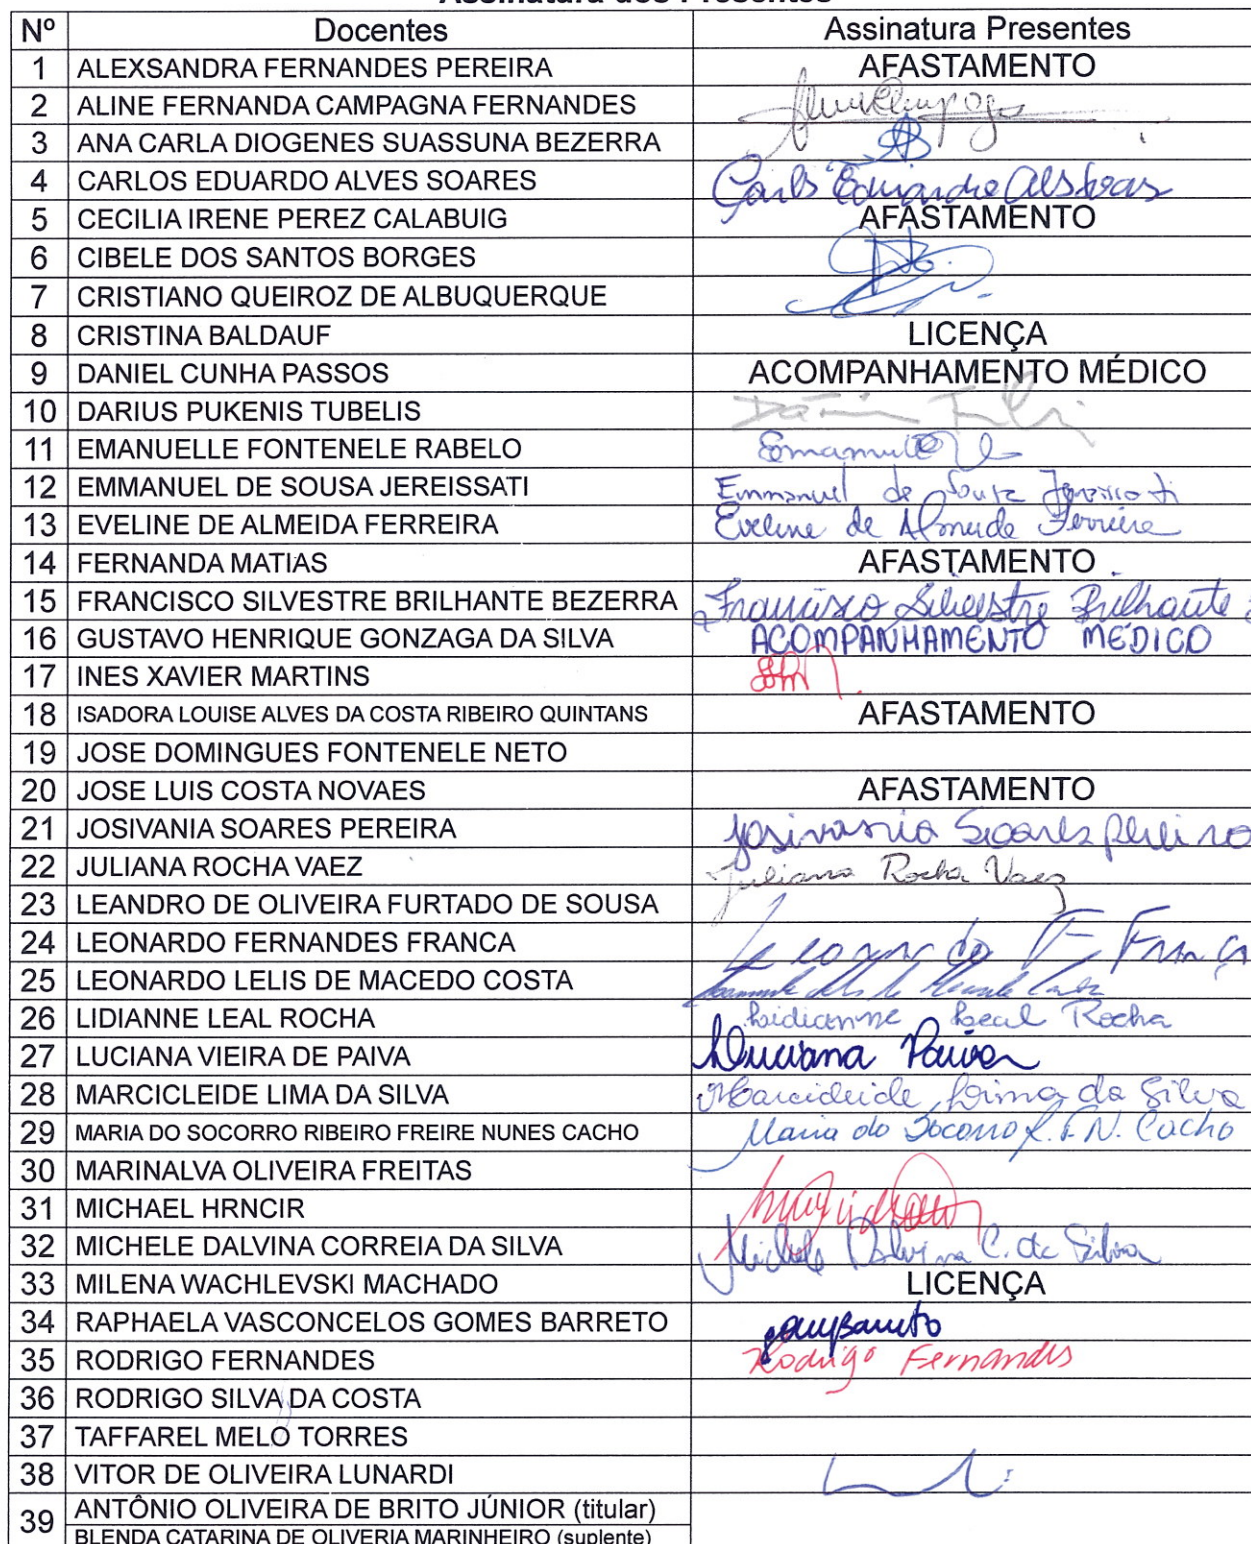 Assinatura dos Presentes
Nº Docentes Assinatura Presentes
1 ALEXSANDRA FERNANDES PEREIRA AFASTAMENTO
2 ALINE FERNANDA CAMPAGNA FERNANDES
3 ANA CARLA DIOGENES SUASSUNA BEZERRA
4 CARLOS EDUARDO ALVES SOARES Carlos Eduardo Alves Soares
5 CECILIA IRENE PEREZ CALABUIG AFASTAMENTO
6 CIBELE DOS SANTOS BORGES
7 CRISTIANO QUEIROZ DE ALBUQUERQUE
8 CRISTINA BALDAUF LICENÇA
9 DANIEL CUNHA PASSOS ACOMPANHAMENTO MÉDICO
10 DARIUS PUKENIS TUBELIS
11 EMANUELLE FONTENELE RABELO
12 EMMANUEL DE SOUSA JEREISSATI Emmanuel de Sousa Jereissati
13 EVELINE DE ALMEIDA FERREIRA Eveline de Almeida Ferreira
14 FERNANDA MATIAS AFASTAMENTO
15 FRANCISCO SILVESTRE BRILHANTE BEZERRA Francisco Silvestre Brilhante
16 GUSTAVO HENRIQUE GONZAGA DA SILVA ACOMPANHAMENTO MÉDICO
17 INES XAVIER MARTINS
18 ISADORA LOUISE ALVES DA COSTA RIBEIRO QUINTANS AFASTAMENTO
19 JOSE DOMINGUES FONTENELE NETO
20 JOSE LUIS COSTA NOVAES AFASTAMENTO
21 JOSIVANIA SOARES PEREIRA Josivania Soares Pereira
22 JULIANA ROCHA VAEZ Juliana Rocha Vaez
23 LEANDRO DE OLIVEIRA FURTADO DE SOUSA
24 LEONARDO FERNANDES FRANCA Leonardo F. França
25 LEONARDO LELIS DE MACEDO COSTA
26 LIDIANNE LEAL ROCHA Lidianne Leal Rocha
27 LUCIANA VIEIRA DE PAIVA Luciana Paiva
28 MARCICLEIDE LIMA DA SILVA Marcicleide Lima da Silva
29 MARIA DO SOCORRO RIBEIRO FREIRE NUNES CACHO Maria do Socorro R. F. N. Cacho
30 MARINALVA OLIVEIRA FREITAS
31 MICHAEL HRNCIR
32 MICHELE DALVINA CORREIA DA SILVA Michele Dalvina C. da Silva
33 MILENA WACHLEVSKI MACHADO LICENÇA
34 RAPHAELA VASCONCELOS GOMES BARRETO
35 RODRIGO FERNANDES Rodrigo Fernandes
36 RODRIGO SILVA DA COSTA
37 TAFFAREL MELO TORRES
38 VITOR DE OLIVEIRA LUNARDI
39 ANTÔNIO OLIVEIRA DE BRITO JÚNIOR (titular)
BLENDA CATARINA DE OLIVERIA MARINHEIRO (suplente)